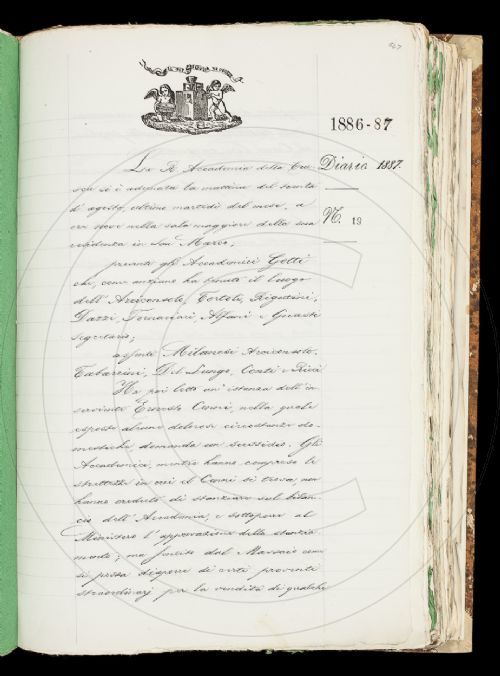 247
1886-87
Diario 1887.
N. 19
La R. Accademia della Cru-
sca si è adunata la mattina del trenta
d'agosto, ultimo martedì del mese, a
ore nove nella sala maggiore della sua
residenza in San Marco;
presenti gli Accademici Gotti
che, come anziano ha tenuto il luogo
dell'Arciconsolo, Tortoli, Rigutini,
Dazzi, Tornanari, Alfani e Guasti
segretario;
assenti Milanesi Arciconsolo,
Tabarrini, Del Lungo, Conti e Ricci
Ha poi letto un'istanza dell'in
serviente Ernesto Conni, nella quale
esposte alcune dolorose circostanze do-
mestiche domanda un sussidio. Gli
Accademici, mentre hanno compreso le
strettezze in cui il Conni si trova, non
hanno creduto di stanziare sul bilan-
cio dell'Accademia, e sottoporre al
Ministero l'approvazione dello stanzia-
mento; ma sentito dal Massaio come
si possa disporre di certi proventi
straordinarj per la vendita di qualche